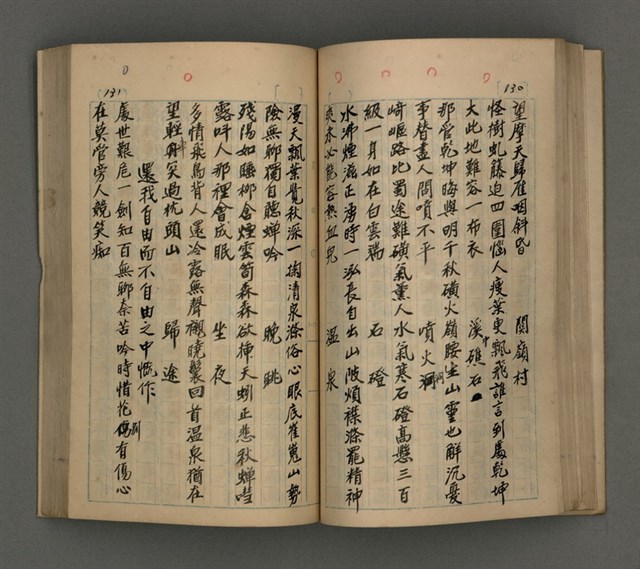 130
望摩天歸雁咽斜昏　關嶺村
怪樹虬藤迫四圍惱人瘦葉更飄飛誰言到處乾坤
大此地難容一布衣　溪中礁石
那管乾坤晦與明千秋磺火嶺腰生山靈也解沉憂
事替盡人間噴不平　噴火洞
崎嶇路比蜀途難磺氣熏人水氣寒石磴高懸三百
級一身如在白雲端　石磴
水沸煙濃正沸時一泓長自出山陂煩襟滌罷精神
爽未必能容熱血兒　溫泉
131
漫天飄葉覺秋深一掬清泉滌俗心眼底崔嵬山勢
險無聊獨自聽蟬吟　晚眺
殘陽如睡柳含煙雲筍森森欲揷天蚓正悲秋蟬噎
露吽人那裡會成眠　坐夜
多情飛鳥背人還冷露無聲襯曉鬟回首溫泉猶在
望輕舟笑過枕頭山　歸途
還我自由而不自由之中慨作
處世艱危一劍知百無聊奈苦吟時惜花別有傷心
在莫管旁人競笑痴